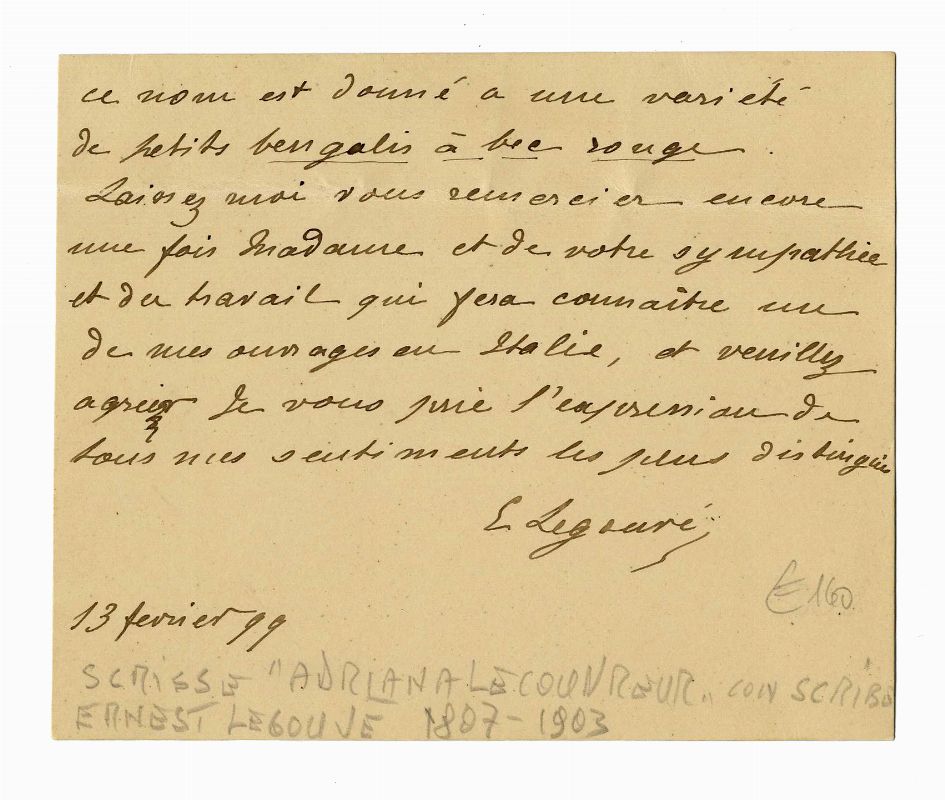 ce nom est donné a une variété
de petits bengalis à bec rouge.
Laissez moi vous remercier encore
une fois Madame et de votre sympathie
et du travail qui fera connaître un
de mes ouvrages en Italie, et veuillez
agréer Je vous prie l'expression de
tous mes sentiments les plus distingués
E Legouvé
€ 160.
13 fevrier 99
SCRISSE "ADRIANA LECOUVREUR" CON SCRIBE
ERNEST LEGOUVE 1807-1903